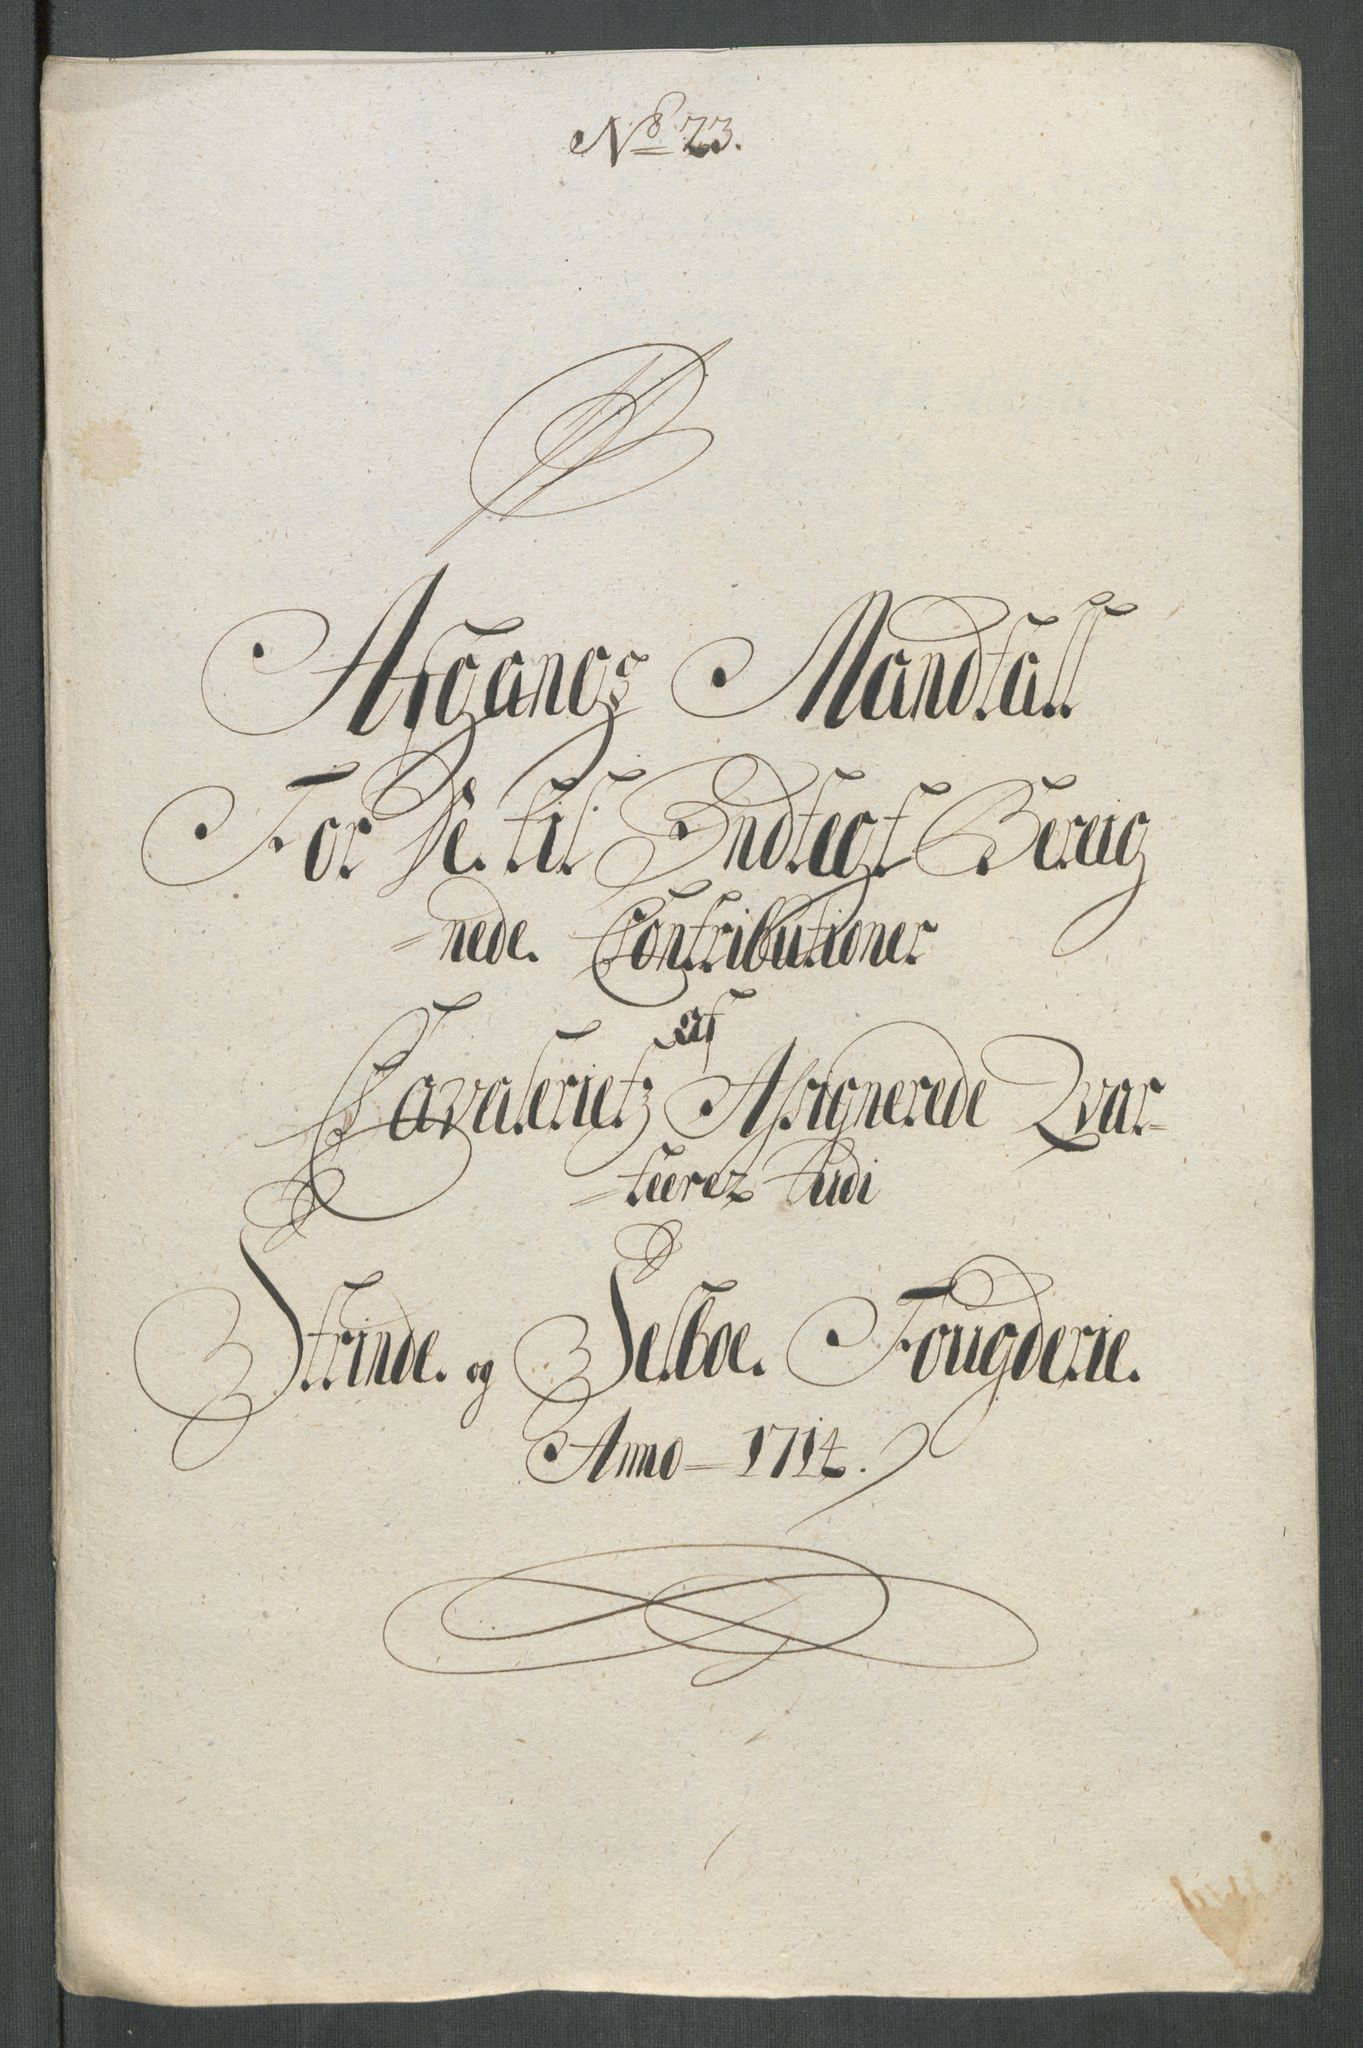 No 23.
Afgangs Mandtall
For de til Indtegt Bereig
=nede Contributioner
af
Cavaleriets Assignerede Qvar=
=teerer udi
Strinde og Selboe Fougderie.
Anno 1714.